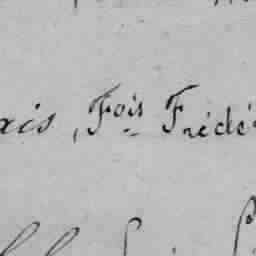 xis, Fois Frédé